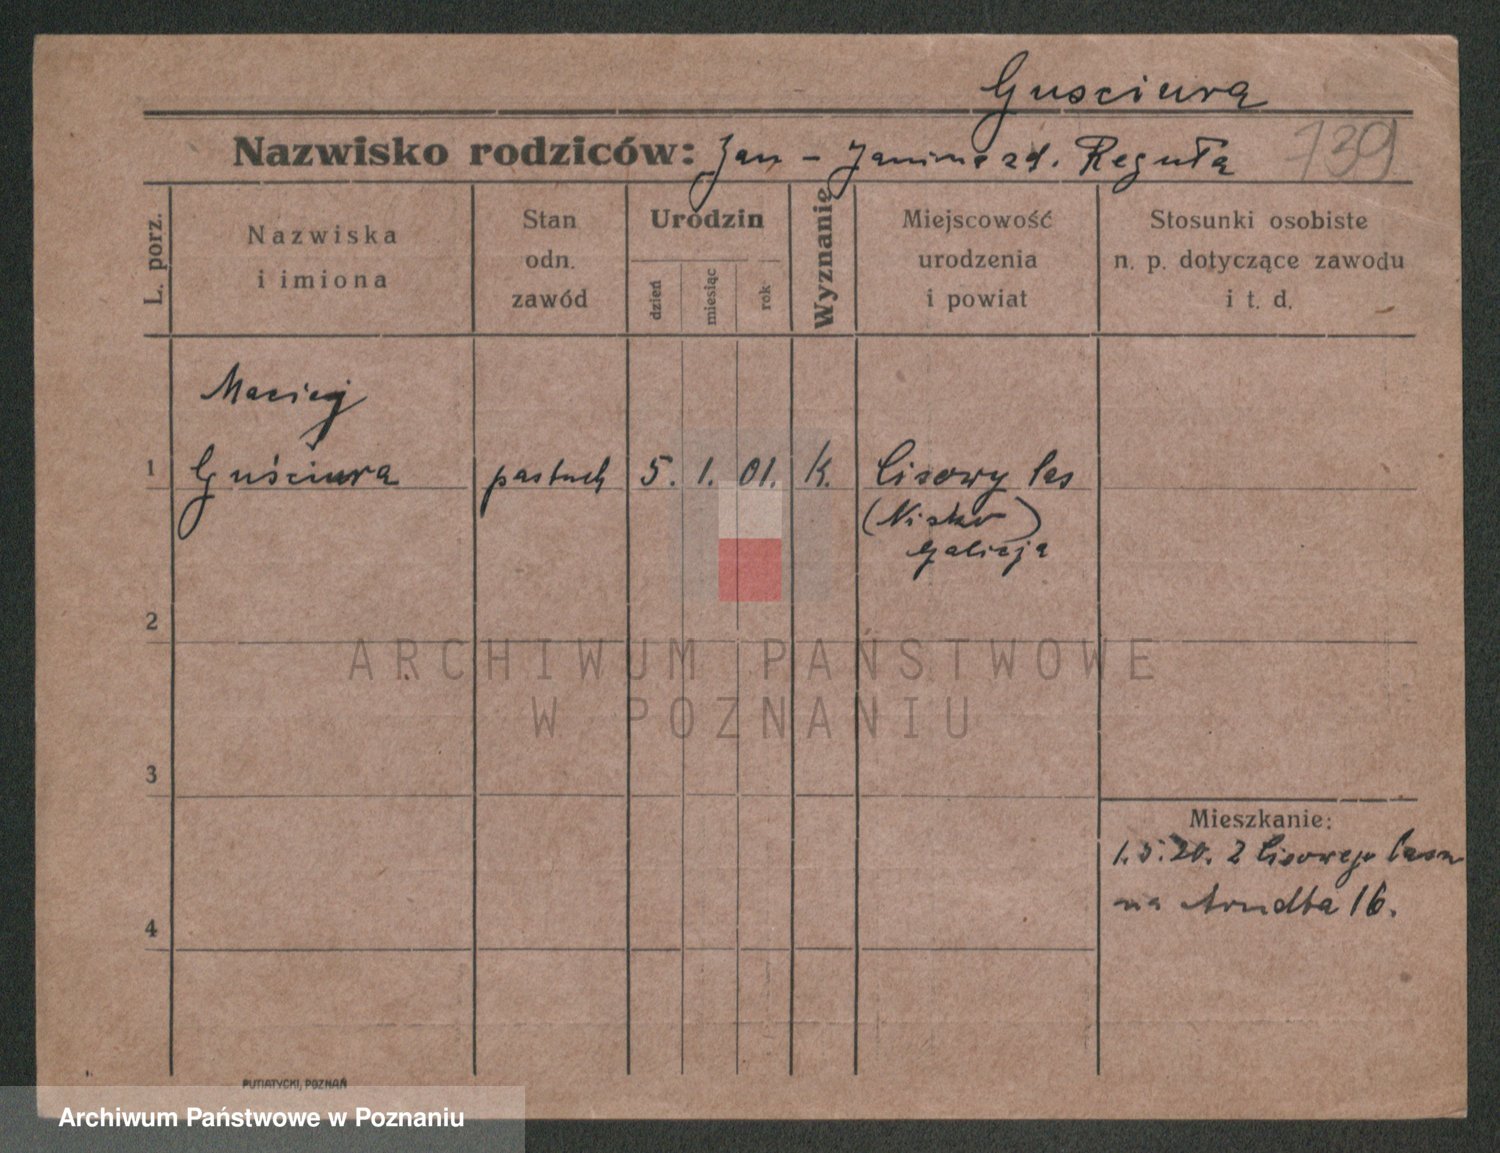 Guściura
Nazwisko rodziców: Jan – Janina zd. Reguła 139
L. porz.
Nazwiska
i imiona
Stan
odn.
zawód
Urodzin
dzień
miesiąc
rok
Wyznanie
Miejscowość
urodzenia
i powiat
Stosunki osobiste
n. p. dotyczące zawodu
i t. d.
Maciej
1 Guściura pastuch 5. 1. 01. K. Lisowy las
(Nisko)
Galicja
2
ARCHIWUM PAŃSTWOWE
W POZNANIU
3
Mieszkanie:
1.5.20. z Lisowego lasu
na Arndta 16.
4
PUTIATYCKI, POZNAŃ
Archiwum Państwowe w Poznaniu